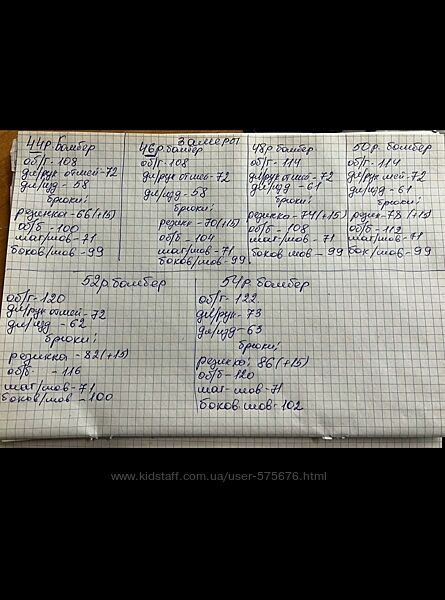 замеры
44р. бомбер
об/г - 108
дл/рук от шеи - 72
дл/изд - 58
брюки:
резинка - 66(+15)
об/б - 100
шаг/шов - 71
боков/шов - 99
46р. бомбер
об/г - 108
дл/рук от шеи - 72
дл/изд - 58
брюки:
резинка - 70(+15)
об/б - 104
шаг/шов - 71
боков/шов - 99
48р бомбер
об/г - 114
дл/рук от шей - 72
дл/изд - 61
брюки:
резинка - 74(+15)
об/б - 108
шаг/шов - 71
боков шов - 99
50р. бомбер
об/г - 114
дл/рук шей - 72
дл/изд - 61
брюки:
резин - 78 (+15)
об/б - 112
шаг/шов - 71
бок/шов - 99
52р. бомбер
об/г - 120
дл/рук от шей - 72
дл/изд - 62
брюки:
резинка - 82(+15)
об/б. - 116
шаг/шов - 71
боков/шов - 100
54р бомбер
об/г - 122
дл/рук - 73
дл/изд - 63
брюки:
резинка: 86(+15)
об/б - 120
шаг шов - 71
боков. шов - 102
www.kidstaff.com.ua/user-575676.html